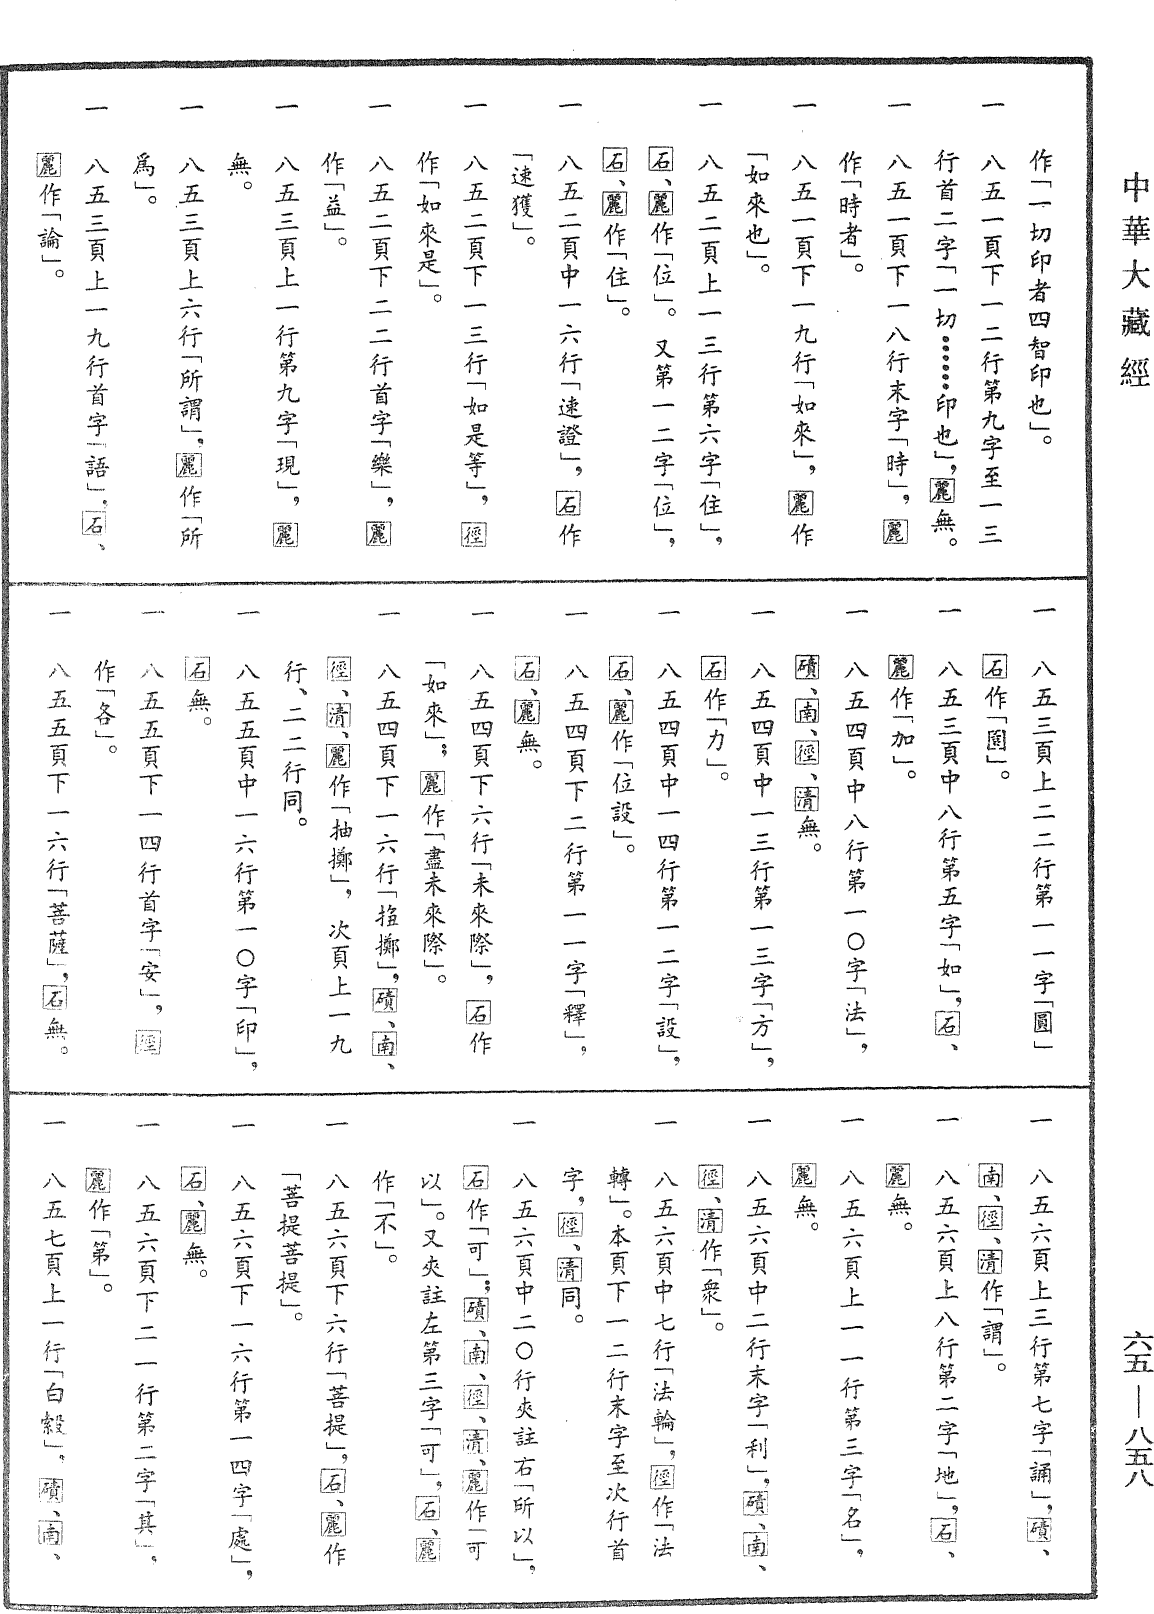 中華大藏經
作「一切印者四智印也」。
一　八五一頁下一二行第九字至一三
行首二字「一切……印也」，麗無。
一　八五一頁下一八行末字「時」，麗
作「時者」。
一　八五一頁下一九行「如來」，麗作
「如來也」。
一　八五二頁上一三行第六字「住」，
石、麗作「位」。又第一二字「位」，
石、麗作「住」。
一　八五二頁中一六行「速證」，石作
「速獲」。
一　八五二頁下一三行「如是等」，徑
作「如來是」。
一　八五二頁下二二行首字「樂」，麗
作「益」。
一　八五三頁上一行第九字「現」，麗
無。
一　八五三頁上六行「所謂」，麗作「所
爲」。
一　八五三頁上一九行首字「語」，石、
麗作「論」。
一　八五三頁上二二行第一一字「圓」
石作「圖」。
一　八五三頁中八行第五字「如」，石、
麗作「加」。
一　八五四頁中八行第一〇字「法」，
磧、南、徑、清無。
一　八五四頁中一三行第一三字「方」，
石作「力」。
一　八五四頁中一四行第一二字「設」，
石、麗作「位設」。
一　八五四頁下二行第一一字「釋」，
石、麗無。
一　八五四頁下六行「未來際」，石作
「如來」；麗作「盡未來際」。
一　八五四頁下一六行「搊擲」，磧、南、
徑、清、麗作「抽擲」，次頁上一九
行、二二行同。
一　八五五頁中一六行第一〇字「印」，
石無。
一　八五五頁下一四行首字「安」，徑
作「各」。
一　八五五頁下一六行「菩薩」，石無。
一　八五六頁上三行第七字「誦」，磧、
南、徑、清作「謂」。
一　八五六頁上八行第二字「地」，石、
麗無。
一　八五六頁上一一行第三字「名」，
麗無。
一　八五六頁中二行末字「利」，磧、南、
徑、清作「衆」。
一　八五六頁中七行「法輪」，徑作「法
轉」。本頁下一二行末字至次行首
字，徑、清同。
一　八五六頁中二〇行夾註右「所以」，
石作「可」；磧、南、徑、清、麗作「可
以」。又夾註左第三字「可」，石、麗
作「不」。
一　八五六頁下六行「菩提」，石、麗作
「菩提菩提」。
一　八五六頁下一六行第一四字「處」，
石、麗無。
一　八五六頁下二一行第二字「其」，
麗作「第」。
一　八五七頁上一行「白縠」，磧、南、
六五—八五八